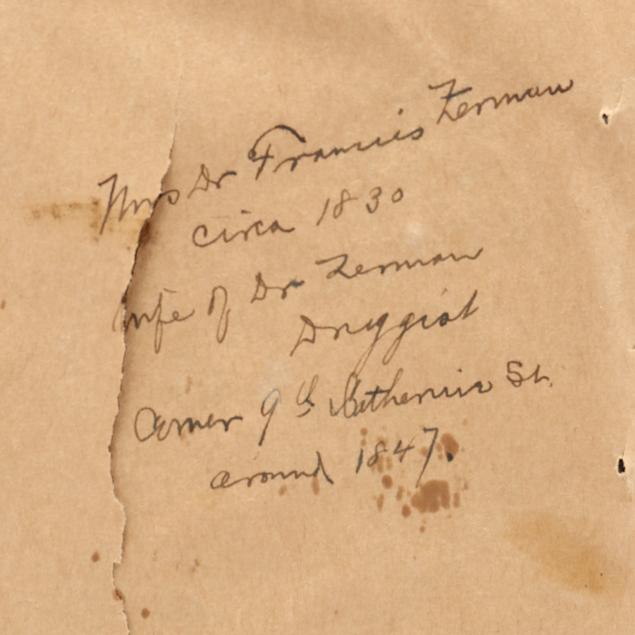 Mrs Dr Francis Zerman
circa 1830
wife of Dr Zerman
Druggist
Corner 9 & St.
around 1847.